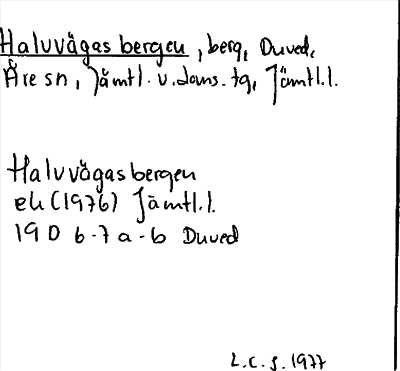 Haluvågas bergen, berg, Duved,
Åre sn, Jämtl. v. doms. tg, Jämtl.l.
Halvvägasbergen
ek (1976) Jämtl.l.
19 D 6-7 a-b Duved
L.C.S. 1977